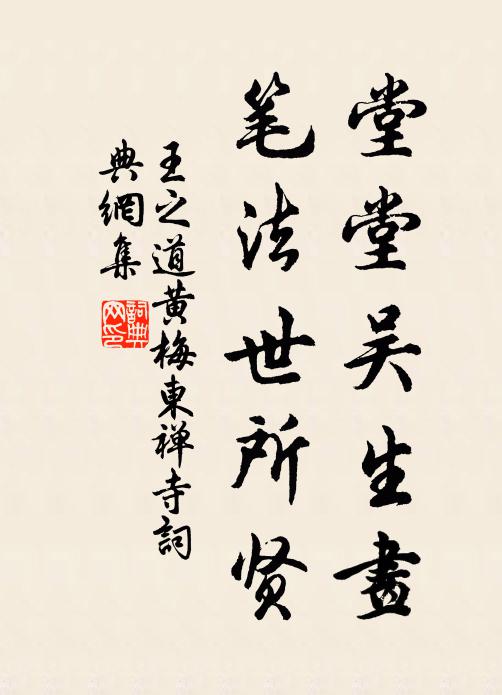 堂堂吴生畫
笔法世所贤
王之道黄梅東禅寺詞
典網集
詞典
网印